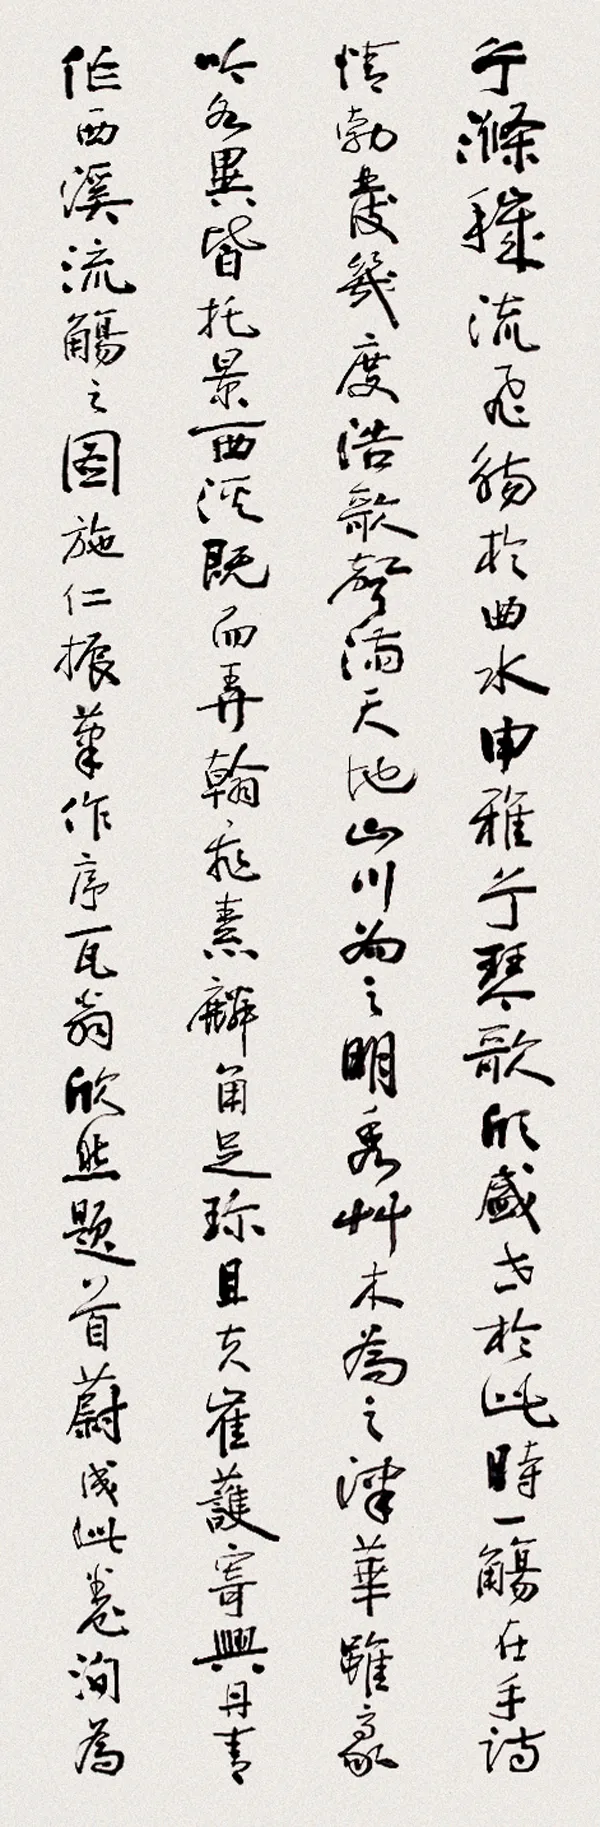 于滌穢流飛觴於曲水申雅兮琴歌欣盛世於此時一觴在手詩
情勃發幾度浩歌聲滿天地山川為之明秀艸木為之津華雖豪
吟各異皆托景西溪既而弄翰飛素麟角足珍且夫崔護寄興丹青
作西溪流觴之圖施仁振筆作序瓦翁欣然題首蔚成此卷洵為